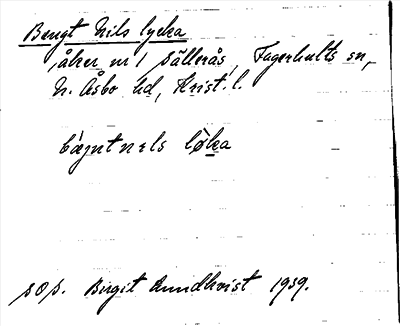 Bengt Nils lycka
åker nr 1 Sällerås, Fagerhults sn,
N. Åsbo hd, Krist. l.
bæŋtnɛls løka
sop. Birgit Lundkvist 1939.